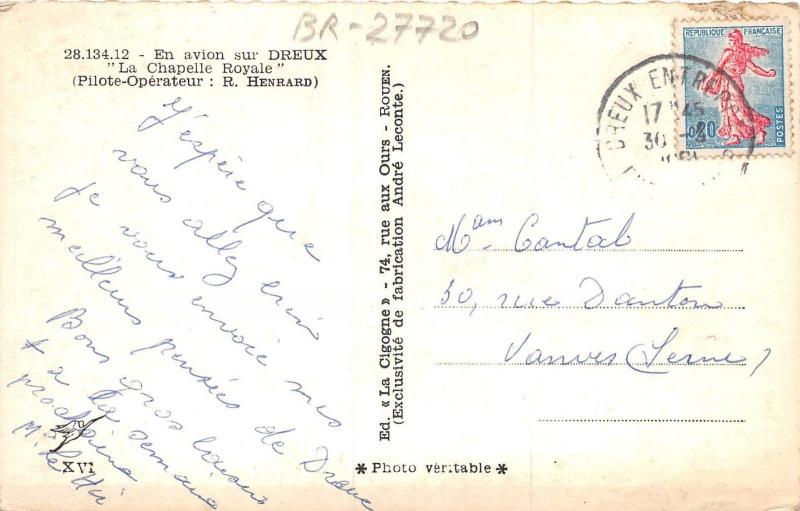 BR-27720
28.134.12 - En avion sur DREUX
"La Chapelle Royale"
(Pilote-Opérateur : R. HENRARD)
J'espère que
vous allez bien
je vous envoie mes
meilleurs pensées de Dreux
Bons gros baisers
+ à la semaine
prochaine
M.
XVI
Ed. « La Cigogne » - 74, rue aux Ours - ROUEN.
(Exclusivité de fabrication André Leconte.)
* Photo véritable *
REPUBLIQUE FRANÇAISE
0,20
POSTES
DREUX ENTREPOT
17 H 45
30
Mam Cantal
30, rue Danton
Vanves (Seine)